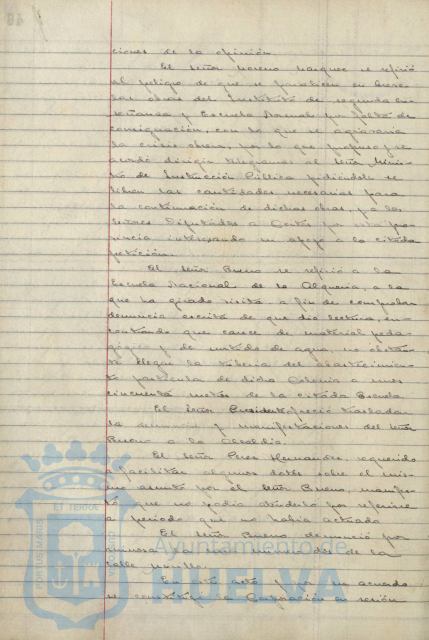 ciones de la opinión.
El señor Moreno Marquez se refirió
al peligro de que se paralicen en breve
las obras del Instituto de segunda En-
señanza y Escuela Normal por falta de
consignación, con lo que se agravaria
la crisis obrera, por lo que propuso y se
acordó dirigir telegramas al señor Minis-
tro de Instrucción Pública pidiéndole se
libren las cantidades necesarias para
la continuación de dichas obras, y a los
señores Diputados a Cortes por esta pro-
vincia interesando su apoyo a la citada
petición.
El señor Bueno se refirió a la
Escuela Nacional de la Alqueria, a la
que ha girado visita a fin de comprobar
denuncia escrita de que dió lectura, en-
contrando que carece de material peda-
gógico y de vertido de agua, no obstan-
te llegar la tuberia del abastecimien-
to particular de dicha Colonia a unos
cincuenta metros de la citada Escuela
El señor Presidente ofreció trasladar
la denuncia y manifestaciones del señor
Bueno a la Alcaldia.
El señor Perez Hernandez, requerido
a facilitar algunos datos sobre el mis-
mo asunto por el señor Bueno, manifes-
tó que no podia dárselo por referirse
a periodo que no habia actuado
El señor Bueno denunció por
la de la
calle
En este acto y por un acuerdo
se constituyó la Corporación en sesión
Ayuntamiento de
HUELVA